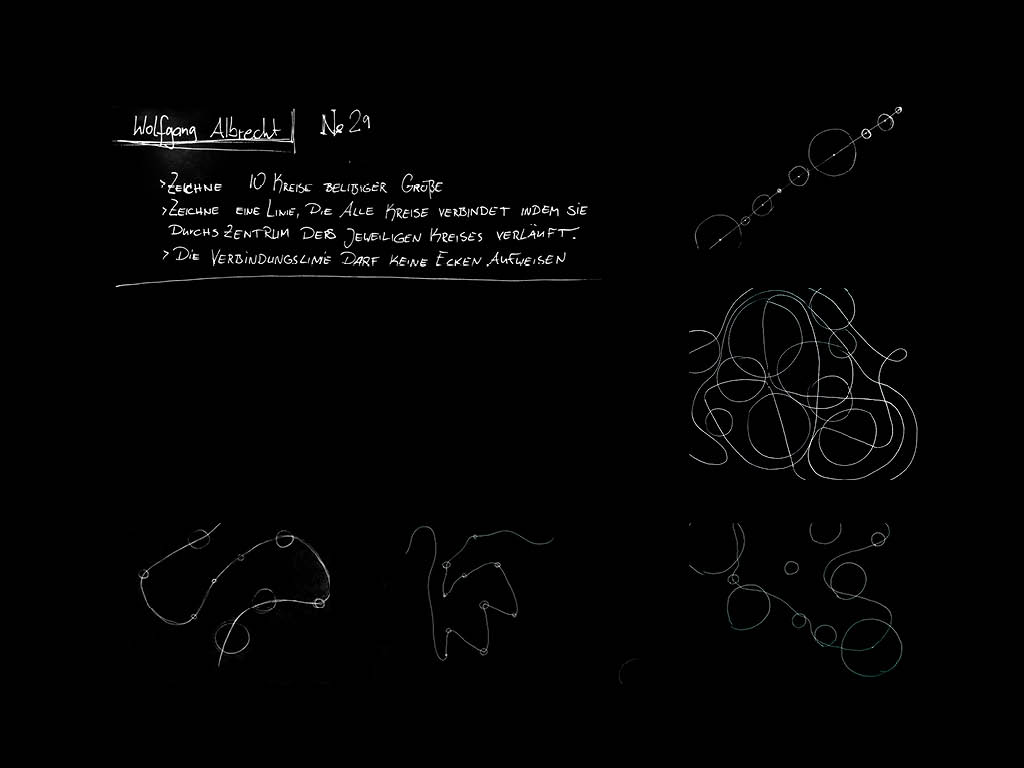 Wolfgang Albrecht No 29
> ZEICHNE 10 KREISE BELIBIGER GRÖßE
> ZEICHNE EINE LINIE, DIE ALLE KREISE VERBINDET INDEM SIE
DURCHS ZENTRUM DERS JEWEILIGEN KREISES VERLÄUFT.
> DIE VERBINDUNGSLINIE DARF KEINE ECKEN AUFWEISEN